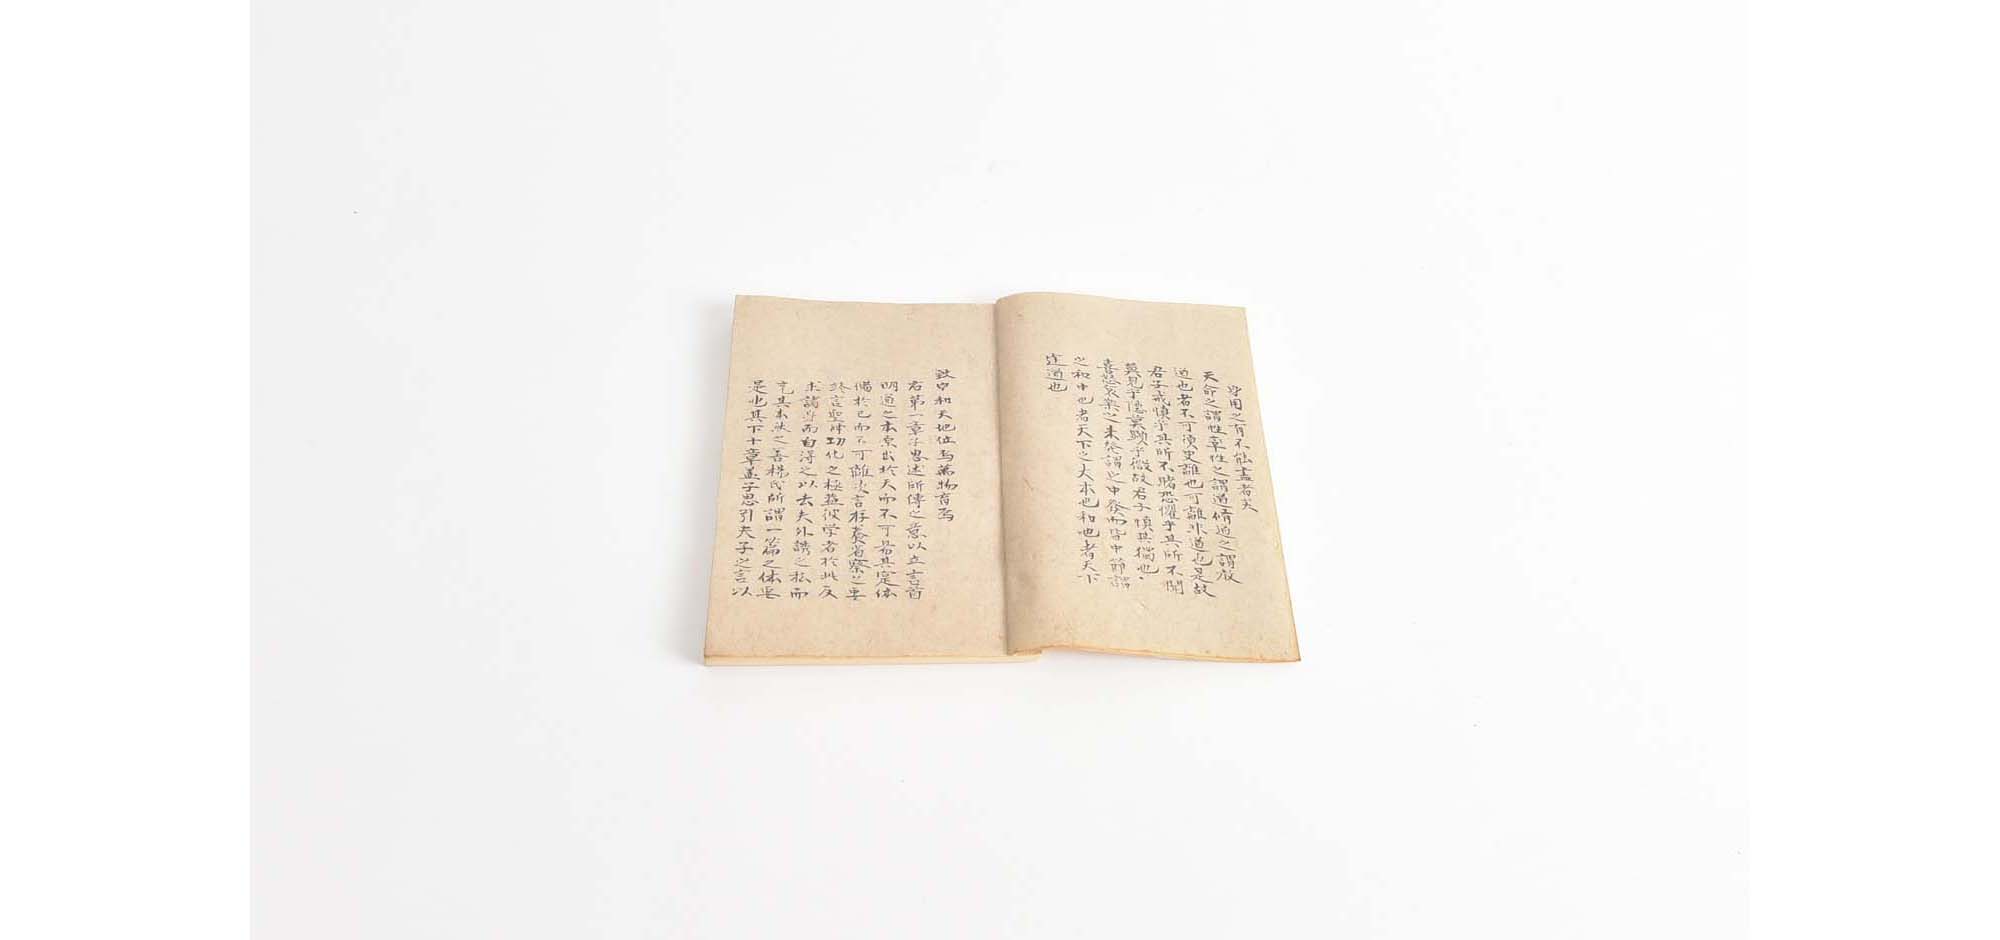 身用之有不能盡者矣
天命之謂性率性之謂道脩道之謂教
道也者不可須臾離也可離非道也是故
君子戒慎乎其所不睹恐懼乎其所不聞
莫見乎隱莫顯乎微故君子慎其獨也
喜怒哀楽之未発謂之中發而皆中節謂
之和中也者天下之大本也和也者天下
達道也
致中和天地位焉萬物育焉
右第一章子思述所傳之意以立言首
明道之本原出於天而不可易其寔体
備於己而不可離次言存養省察之要
終言聖神功化之極蓋欲学者於此反
求諸身而自得之以去夫外誘之私而
充其本然之善楊氏所謂一篇之体要
是也其下十章蓋子思引夫子之言以